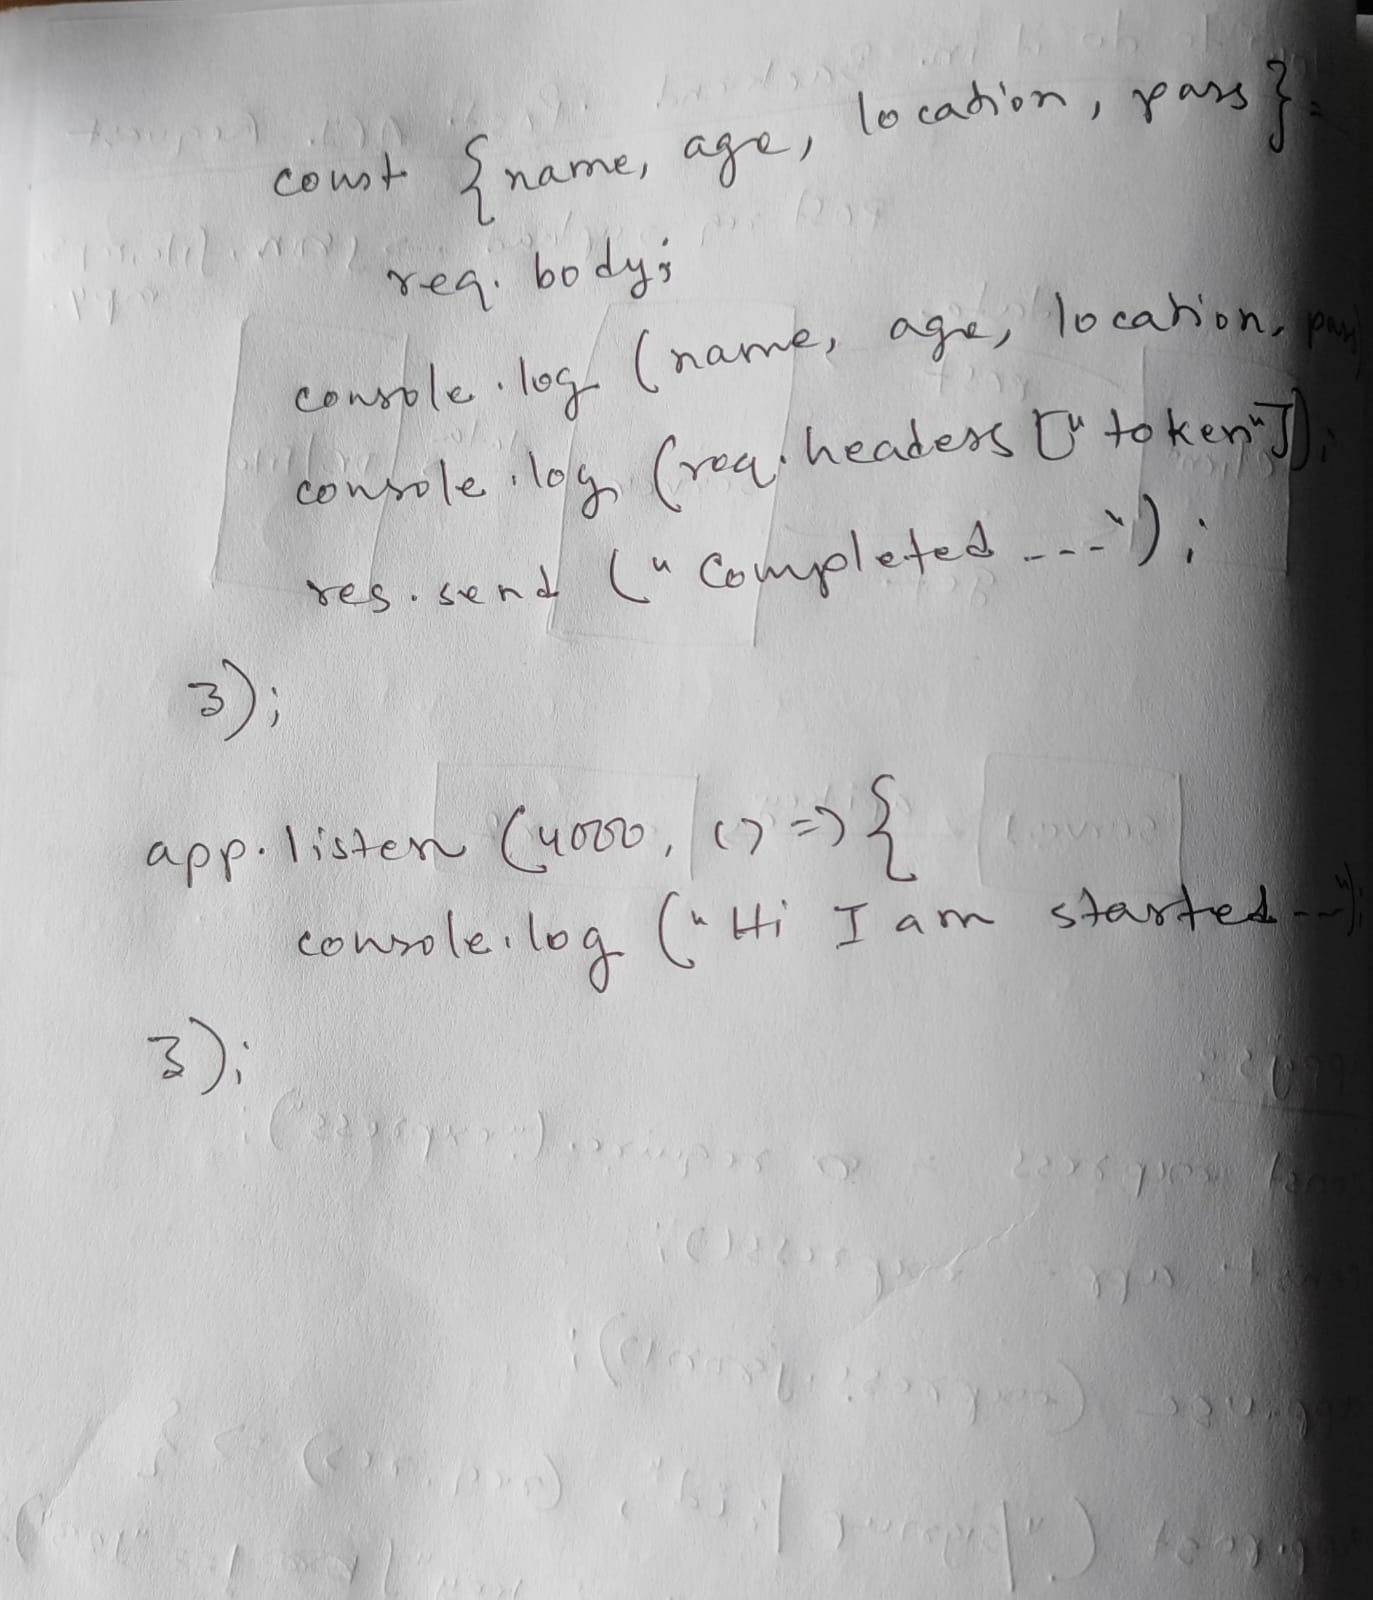 const {name, age, location, pass} =
req.body;
console.log (name, age, location, pass)
console.log (req.headers ["token"]);
res.send ("Completed ---");
});
app.listen (4000, () => {
console.log ("Hi I am started ---");
});